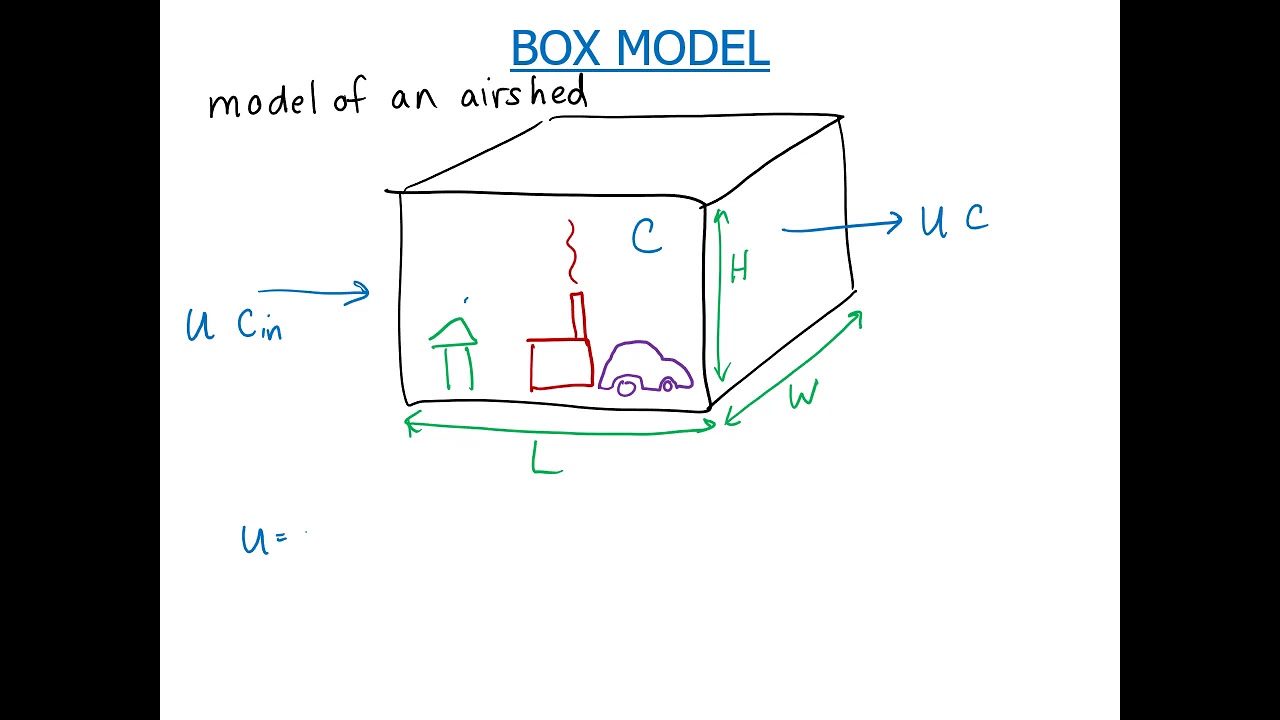 BOX MODEL
model of an airshed
C
u C
H
u Cin
W
L
u =